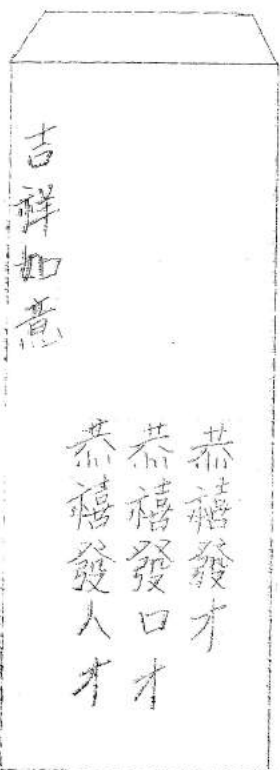 恭禧發才
恭禧發口才
恭禧發人才
吉祥如意